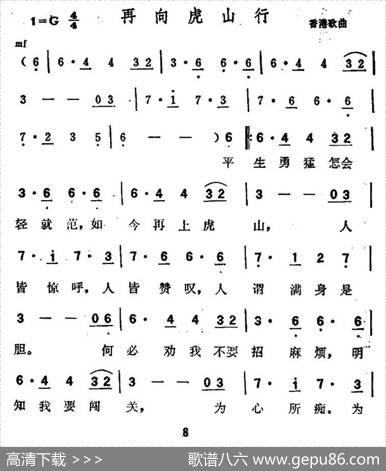 再向虎山行
1=G 4/4
香港歌曲
mf
(6 | 6·4 4 32 | 3·6 6·6 | 6·4 4 32 |
3 — — 03 | 7·i 7·3 | 7·3 7·3 |
7·2 3 5 | 6 — — )6 |: 6·4 4 32 |
平 生勇猛怎会
3·6 6·6 | 6·4 4 32 | 3 — — 03 |
轻就范,如 今再上虎 山, 人
7·i 7·3 | 7·3 6·6 | 7·1 2 7 |
皆惊呼,人 皆赞叹,人 谓满身是
3 — — 06 | 6·4 4 32 | 3·6 6·6 |
胆。 何 必劝我不要 招麻烦,明
6·4 4 32 | 3 — — 03 | 7·i 7·3 |
知我要闯 关, 为 心所痴,为
8
高清下载 >>>
歌谱八六 www.gepu86.com